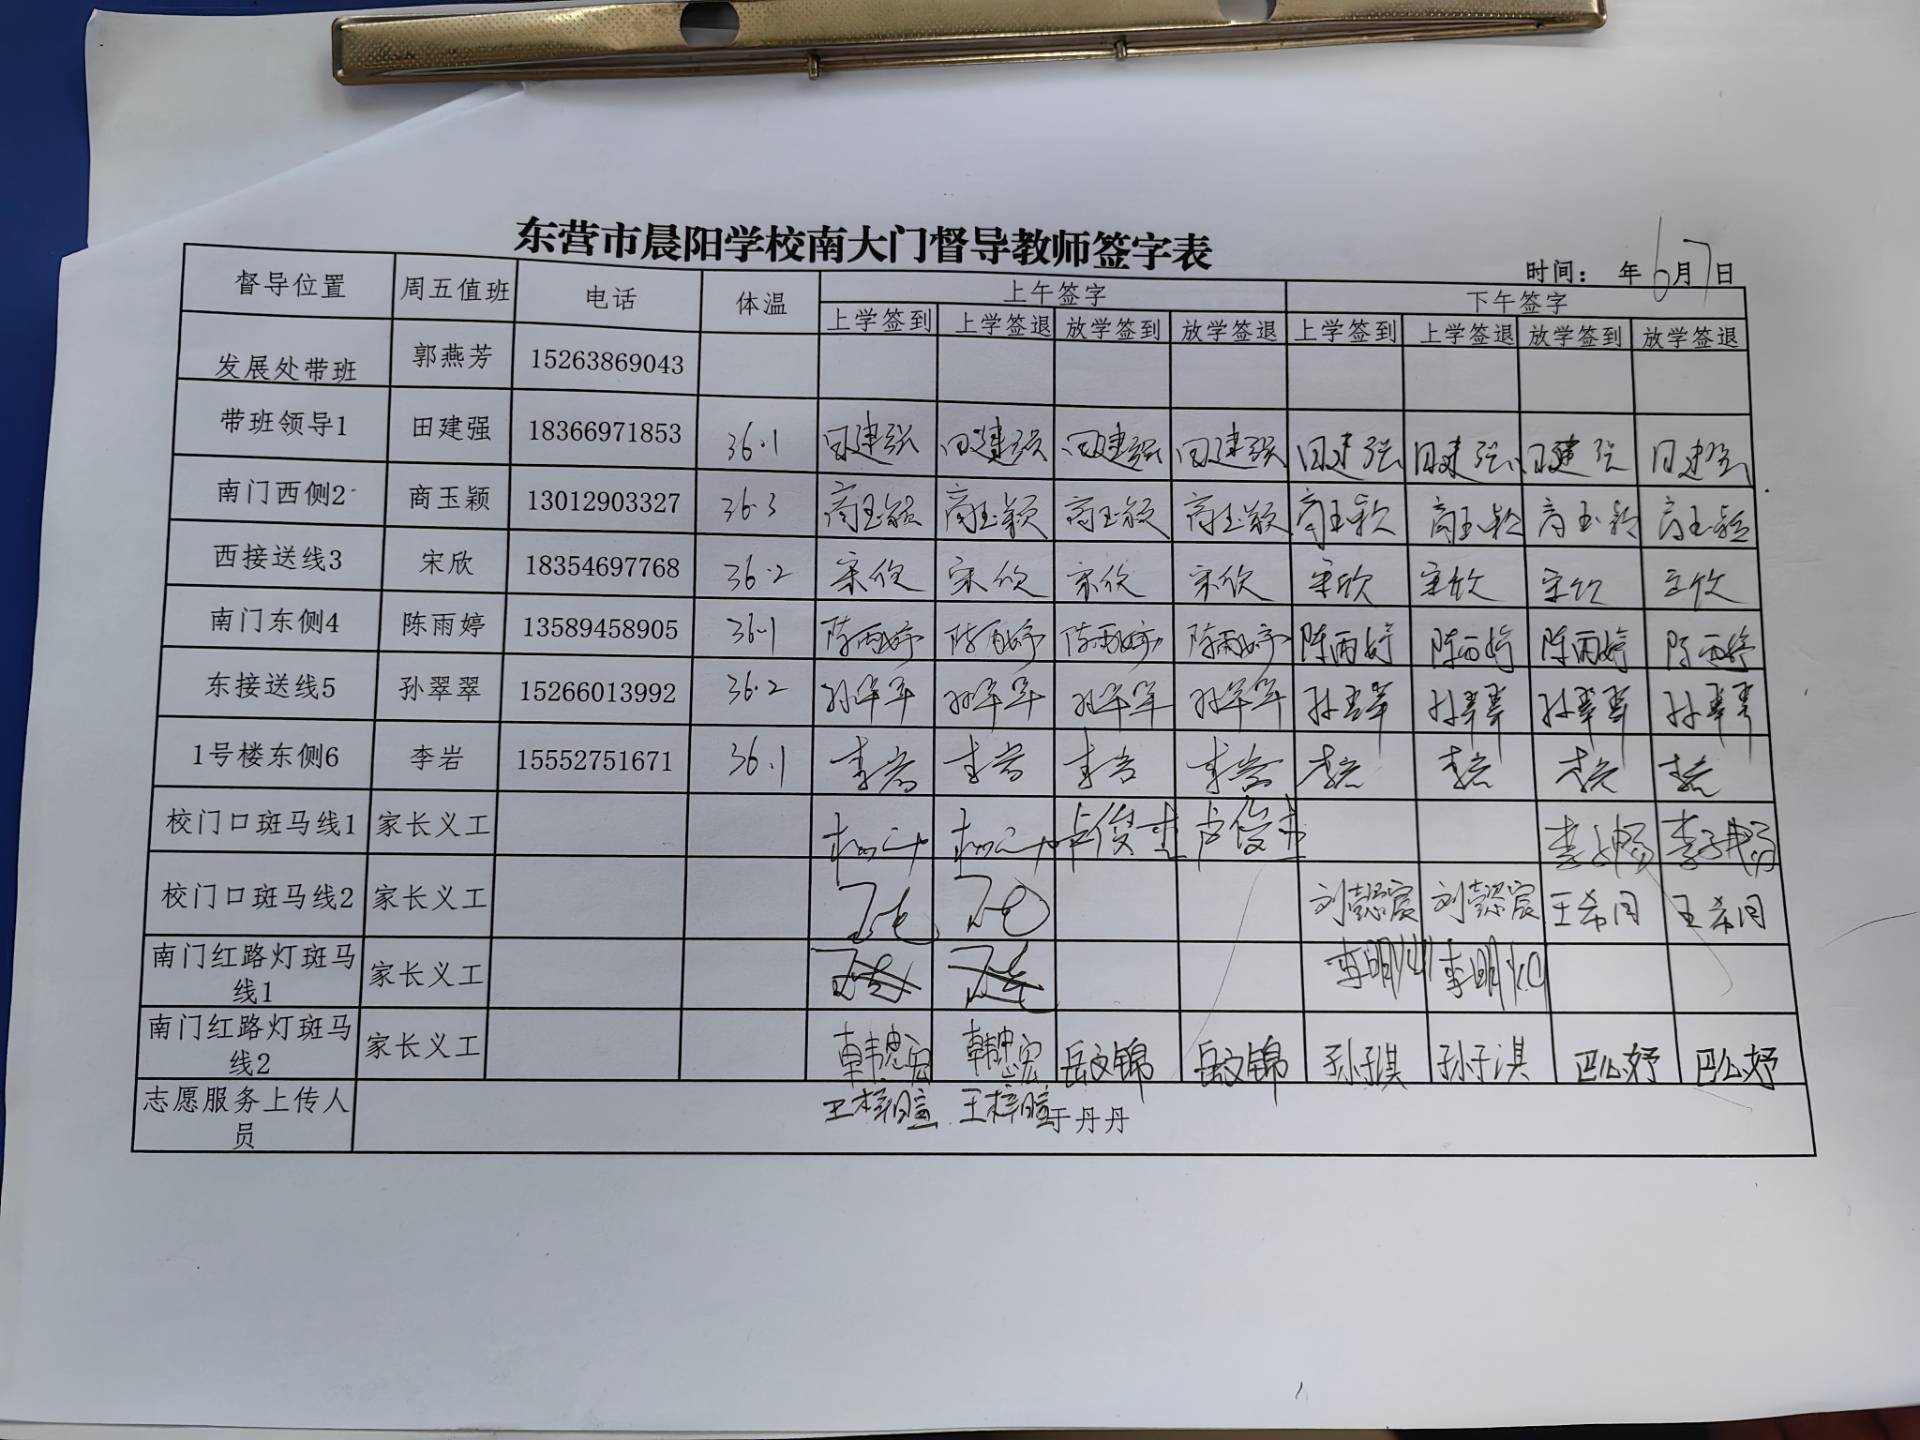 东营市晨阳学校南大门督导教师签字表
时间： 年6月7日
督导位置 周五值班 电话 体温 上午签字 下午签字
上学签到 上学签退 放学签到 放学签退 上学签到 上学签退 放学签到 放学签退
发展处带班 郭燕芳 15263869043
带班领导1 田建强 18366971853 36.1 田建强 田建强 田建强 田建强 田建强 田建强 田建强 田建强
南门西侧2 商玉颖 13012903327 36.3 商玉颖 商玉颖 商玉颖 商玉颖 商玉颖 商玉颖 商玉颖 商玉颖
西接送线3 宋欣 18354697768 36.2 宋欣 宋欣 宋欣 宋欣 宋欣 宋欣 宋欣 宋欣
南门东侧4 陈雨婷 13589458905 36.1 陈雨婷 陈雨婷 陈雨婷 陈雨婷 陈雨婷 陈雨婷 陈雨婷 陈雨婷
东接送线5 孙翠翠 15266013992 36.2 孙翠翠 孙翠翠 孙翠翠 孙翠翠 孙翠翠 孙翠翠 孙翠翠 孙翠翠
1号楼东侧6 李岩 15552751671 36.1 李岩 李岩 李岩 李岩 李岩 李岩 李岩 李岩
校门口斑马线1 家长义工
校门口斑马线2 家长义工 刘懿宸 刘懿宸 王希月 王希月
南门红路灯斑马
线1
家长义工
南门红路灯斑马
线2
家长义工 韩忠宏 韩忠宏 岳文锦 岳文锦 孙子淇 孙子淇
王梓暄 王梓暄
志愿服务上传人
员
于丹丹